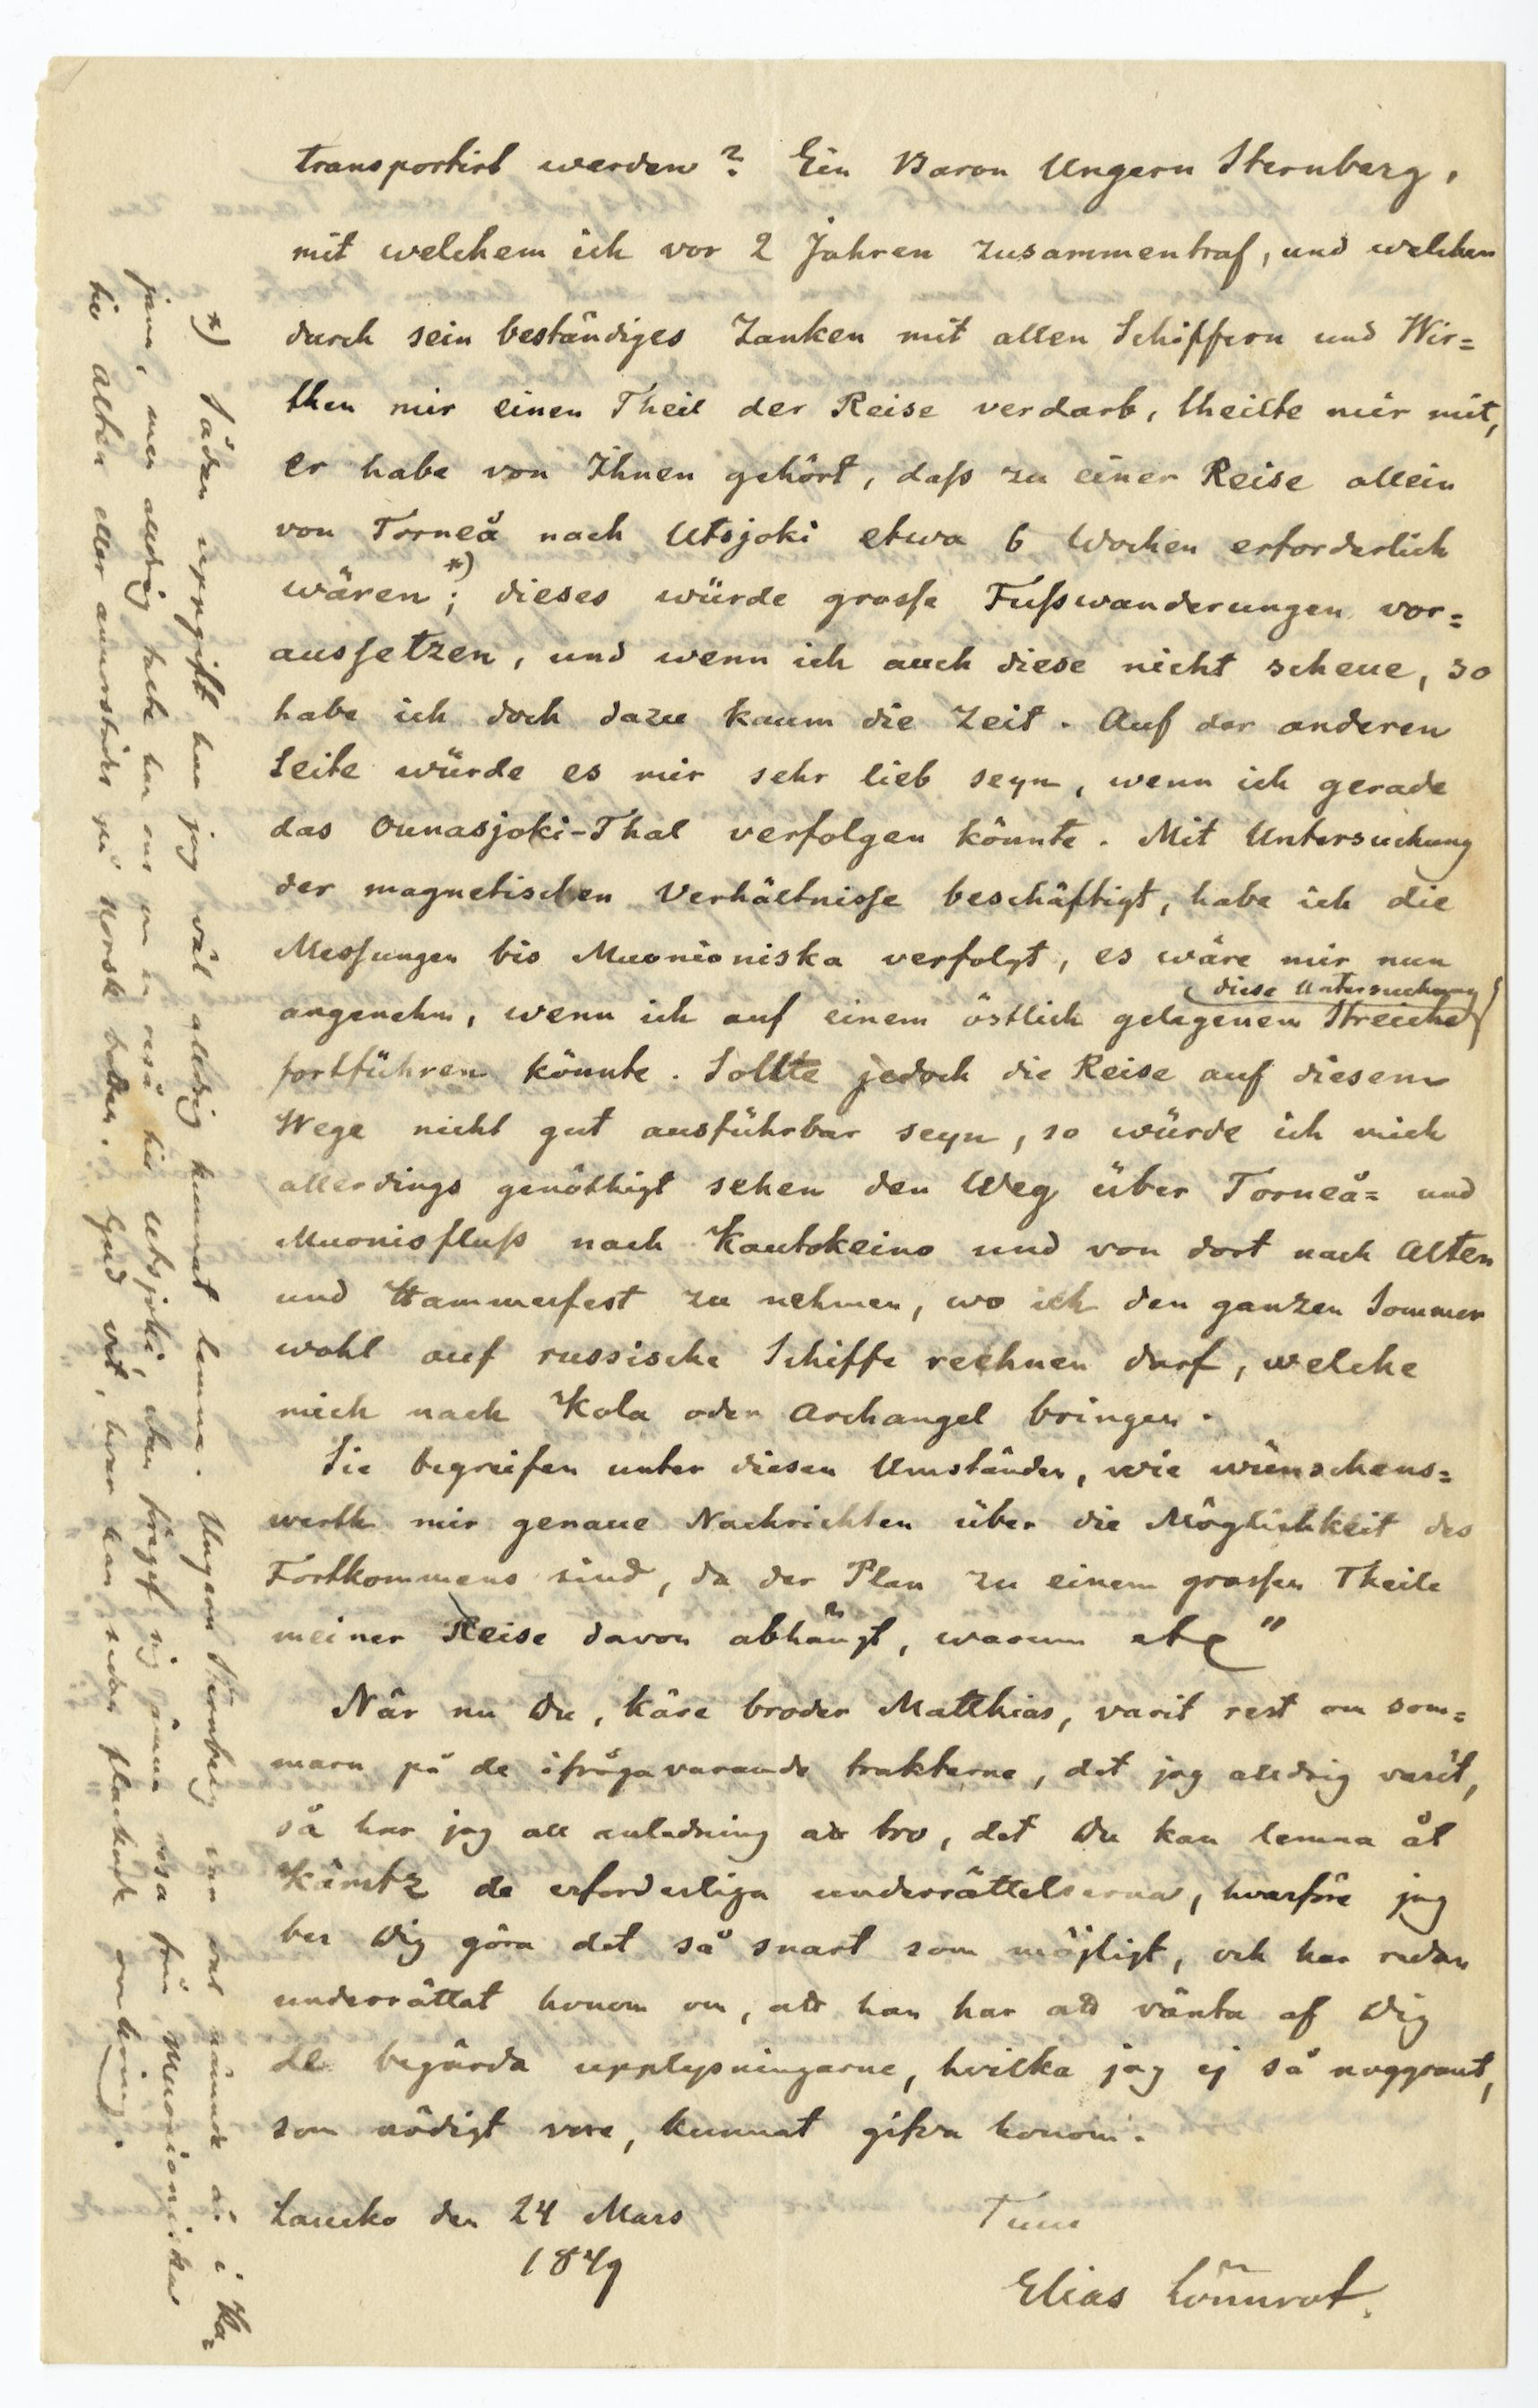 transportirt werden? Ein Baron Ungern Sternberg,
mit welchem ich vor 2 Jahren zusammentraf, und welcher
durch sein beständiges Zanken mit allen Schiffern und Wir=
then mir einen Theil der Reise verdarb, theilte mir mit,
er habe von Ihnen gehört, daß zu einer Reise allein
von Torneå nach Utsjoki etwa 6 Wochen erforderlich
wären *); dieses würde grosse Fußwanderungen vor=
aussetzen, und wenn ich auch diese nicht scheue, so
habe ich doch dazu kaum die Zeit. Auf der anderen
Seite würde es mir sehr lieb seyn, wenn ich gerade
das Ounasjoki-Thal verfolgen könnte. Mit Untersuchung
der magnetischen Verhältnisse beschäftigt, habe ich die
Messungen bis Muonioniska verfolgt, es wäre mir nun
diese Untersuchung
angenehm, wenn ich auf einem östlich gelegenem Striche
fortführen könnte. Sollte jedoch die Reise auf diesem
Wege nicht gut ausführbar seyn, so würde ich mich
allerdings genöthigt sehen den Weg über Torneå= und
Muonisfluß nach Kautokeino und von dort nach Alten
und Hammerfest zu nehmen, wo ich den ganzen Sommer
wohl auf russische Schiffe rechnen darf, welche
mich nach Kola oder Archangel bringen.
Sie begreifen unter diesen Umständen, wie wünschens=
werth mir genaue Nachrichten über die Möglichkeit des
Fortkommens sind, da der Plan zu einem grossen Theile
meiner Reise davon abhängt, warum etc"
När nu Du, käre broder Matthias, varit rest om som=
marn på de ifrågavarande trakterne, det jag alldrig varit,
så har jag all anledning att tro, det Du kan lemna åt
Kämtz de erforderliga underrättelserna, hvarföre jag
ber Dig göra det så snart som möjligt, och har redan
underrättat honom om, att han har att vänta af Dig
de begärda upplysningarne, hvilka jag ej så noggrant,
som nödigt vore, kunnat gifva honom.
Laukko den 24 Mars
1849
Tuus
Elias Lönnrot.
*) Sådan uppgift har jag väl alldrig kunnat lemna. Ungern Sternberg var väl nämnde år i Ka=
jana, men alldrig hade han ens om en resa hit Utsjoki, utan frågat sig från Muonioniska
till Alten eller annorstädes på Norsk botten. Gud vet, hvar han sedan omkring.